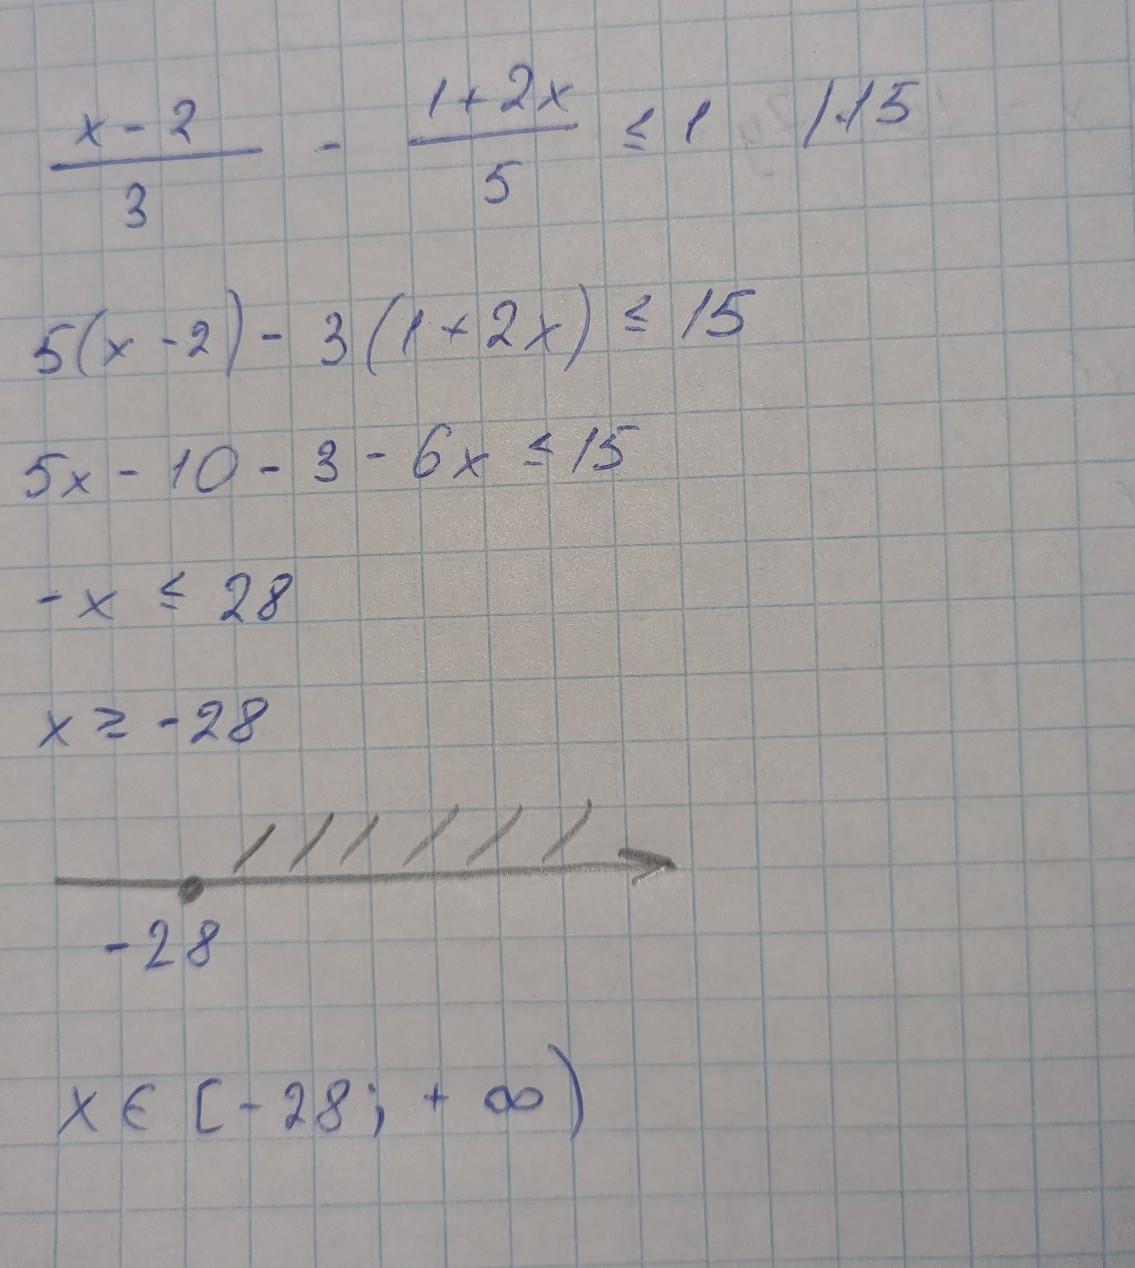 x - 2 / 3 - 1 + 2x / 5 ≤ 1 | · 15
5(x - 2) - 3(1 + 2x) ≤ 15
5x - 10 - 3 - 6x ≤ 15
-x ≤ 28
x ≥ -28
-28
x ∈ [-28; +∞)